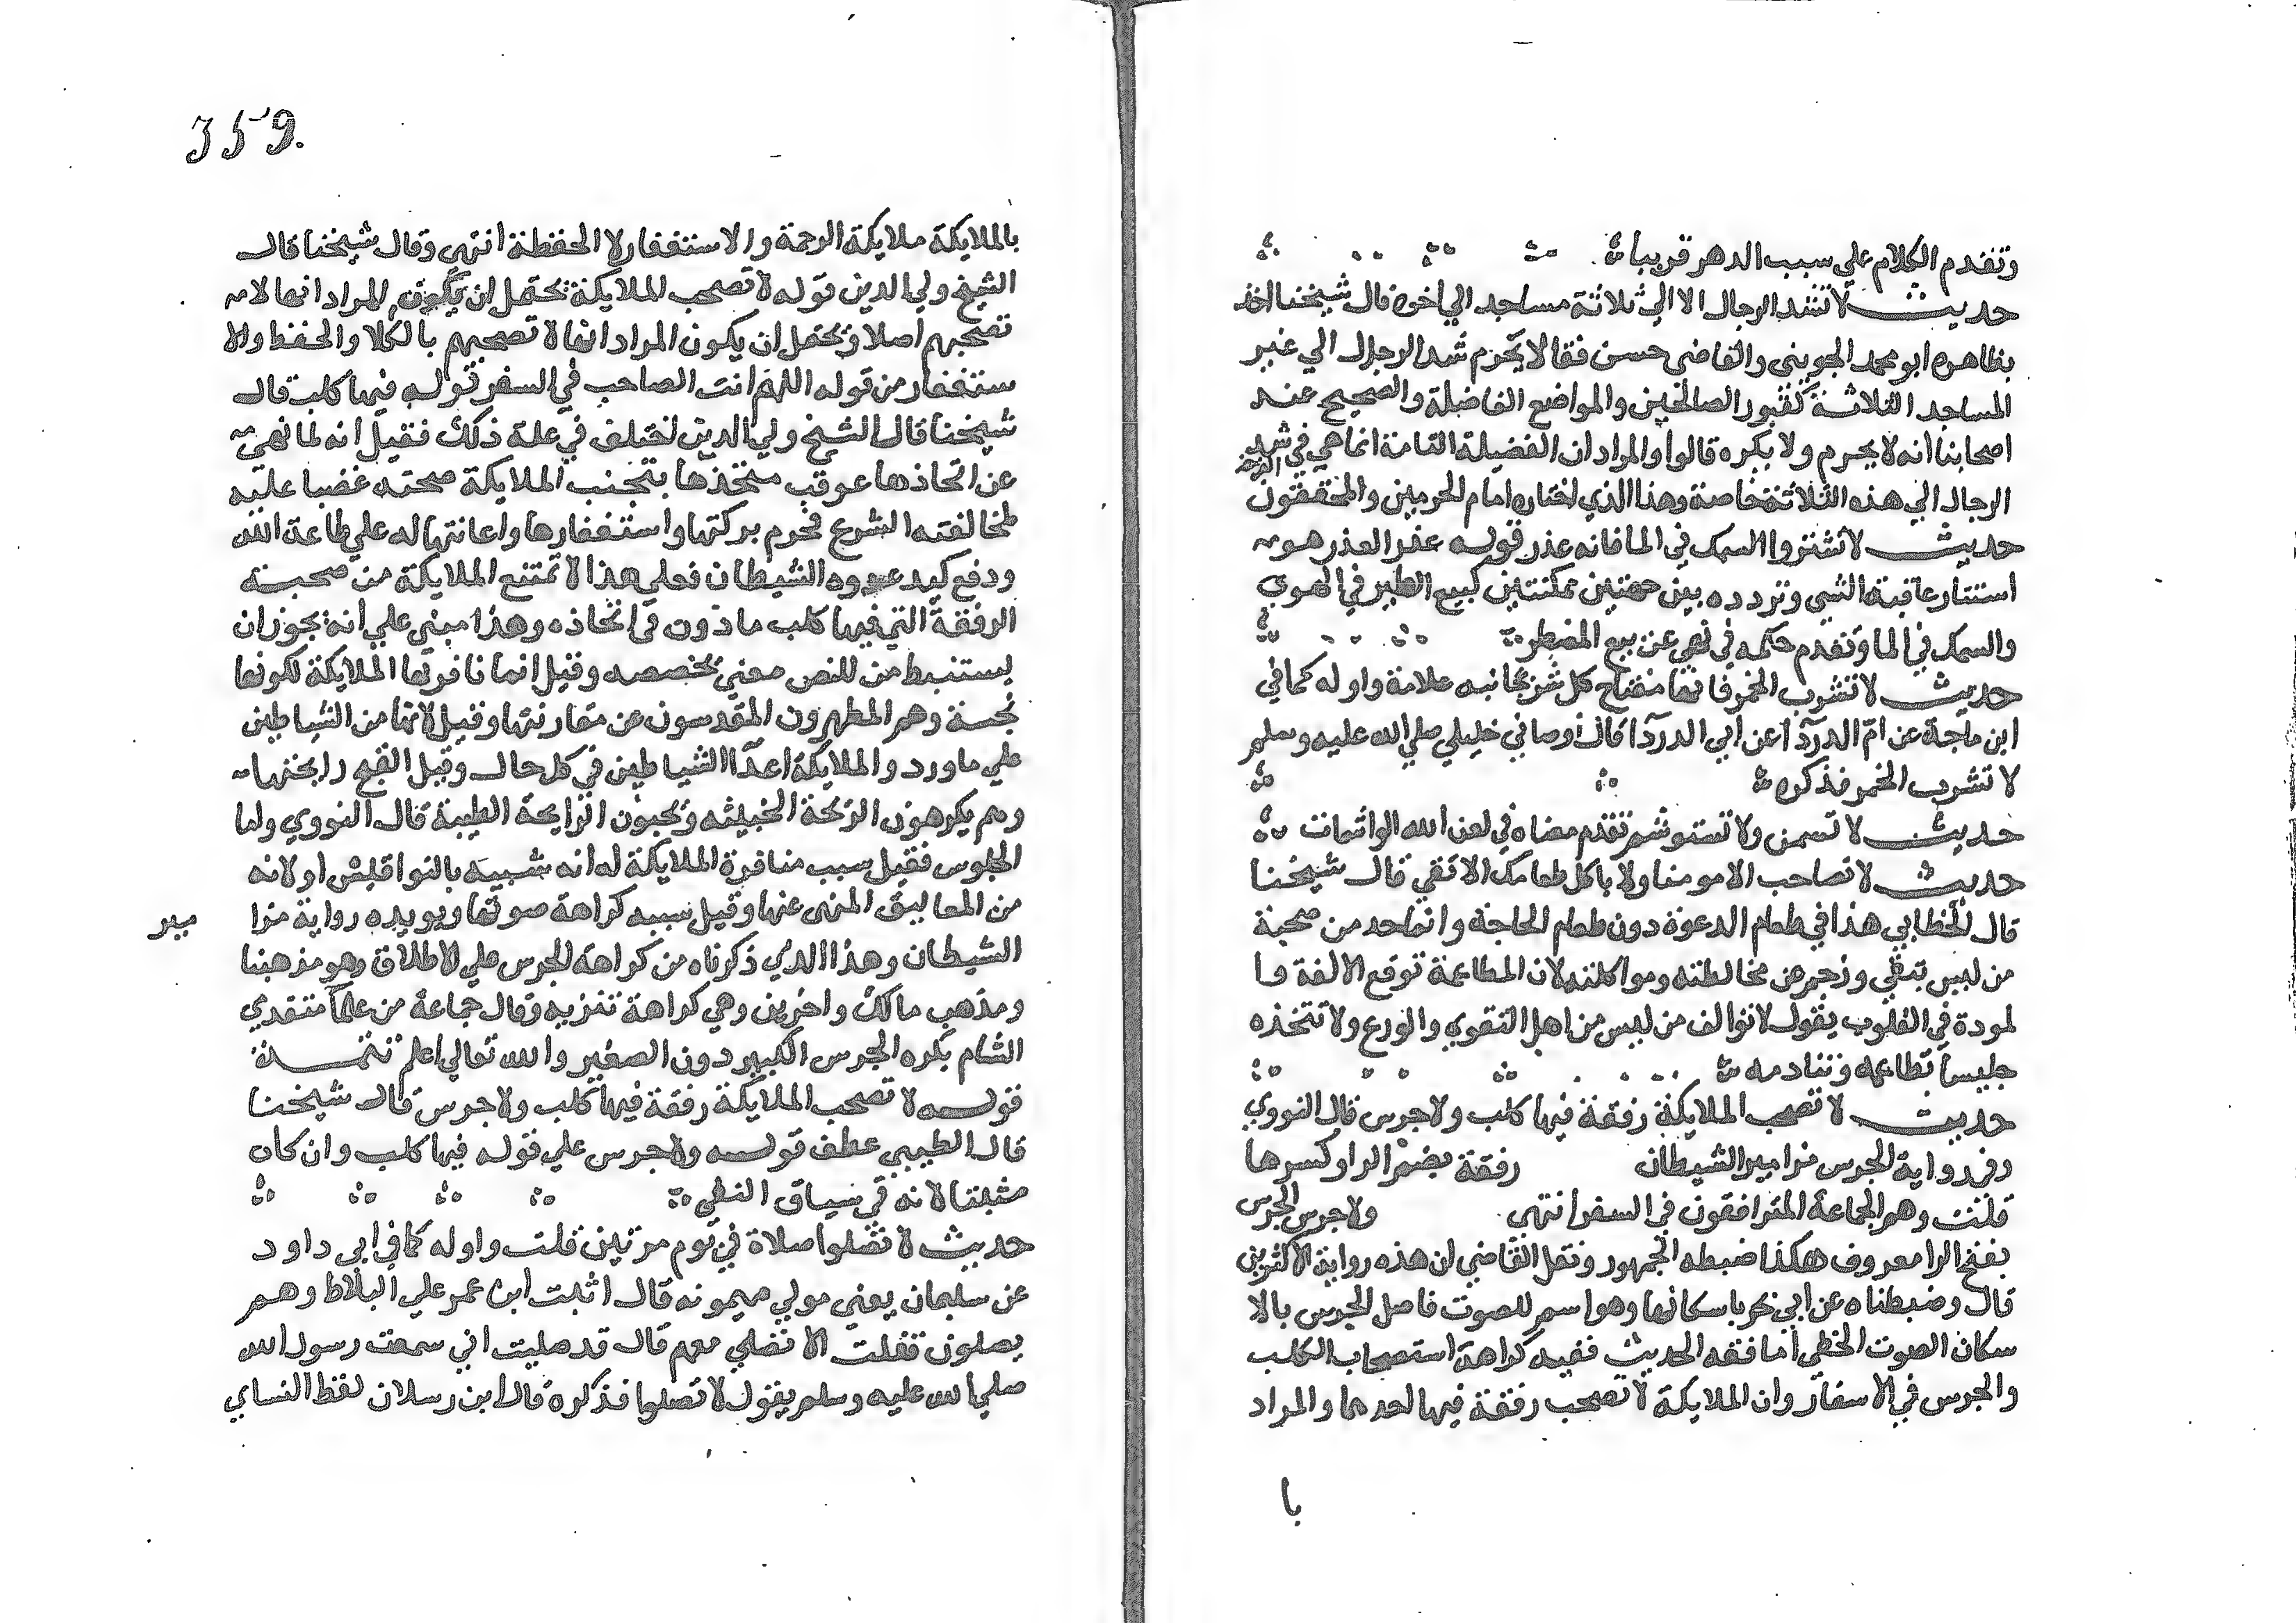 وتقدم الكلام علي سبب الدهر قريبا
حديث لا تشد الرجال الا الي ثلاثة مساجد الي اخره قال شيخنا اخذ
بظاهره ابو محمد الجويني والقاضي حسين فقالا يحرم شد الرجال الي غير
المساجد الثلاثة كقبور الصالحين والمواضع الفاضلة والصحيح عند
اصحابنا انه لا يحرم ولا يكره قالوا والمراد ان الفضيلة التامة انما هي في شد
الرجال الي هذه الثلاثة خاصة وهذا الذي اختاره امام الحرمين والمحققون
حديث لا تشتروا السمك في الما فانه غرر قوله غرر الغرر هو
استتار عاقبة الشي وتردده بين جهتين ممكنتين كبيع الطير في الهوي
والسمك في الما وتقدم حكمه في نهي عن بيع المضطر
حديث لا تشرب الخمر فانها مفتاح كل شر بجانبه علامة واوله كما في
ابن ماجة عن ام الدردآ عن ابي الدردآ قال اوصاني خليلي صلي الله عليه وسلم
لا تشرب الخمر فذكره
حديث لا تسمن ولا تستوشم تقدم معناه في لعن الله الواشمات
حديث لا تصاحب الا مومنا ولا ياكل طعامك الا تقي قال شيخنا
قال الخطابي هذا في طعام الدعوة دون طعام الحاجة وانما حذر من صحبة
من ليس بتقي وزجر عن مخالطته ومواكلته لان المطاعمة توقع الالفة وا
لمودة في القلوب يقول لا توالف من ليس من اهل التقوي والورع ولا تتخذه
جليسا تطاعمه وتنادمه
حديث لا تصحب الملايكة رفقة فيها كلب ولا جرس قال النووي
وفي رواية الجرس مزامير الشيطان رفقة بضم الرا وكسرها
قلت وهم الجماعة المترافقون في السفر انتهي ولا جرس الجرس
بفتح الرا معروف هكذا ضبطه الجمهور ونقل القاضي ان هذه رواية الاكثرين
قال وضبطناه عن ابي بحر باسكانها وهو اسم للصوت فاصل الجرس بالا
سكان الصوت الخفي اما فقه الحديث ففيه كراهة استصحاب الكلب
والجرس في الاسفار وان الملايكة لا تصحب رفقة فيها احدهما والمراد
با
359.
بالملايكة ملايكة الرحمة والاستغفار لا الحفظة انتهي وقال شيخنا قال
الشيخ ولي الدين قوله لا تصحب الملايكة يحتمل ان يكون المراد انها لا
تصحبهم اصلا ويحتمل ان يكون المراد انها لا تصحبهم بالكلا والحفظ والا
ستغفار من قوله اللهم انت الصاحب في السفر قوله فيها كلب قال
شيخنا قال الشيخ ولي الدين اختلف في علة ذلك فقيل انه لما نهي
عن اتخاذها عوقب متخذها بتجنب الملايكة صحبته غضبا عليه
لمخالفته الشرع فحرم بركتها واستغفارها واعانتها له علي طاعة الله
ودفع كيد عدوه الشيطان فعلي هذا لا تمتنع الملايكة من صحبة
الرفقة التي فيها كلب ماذون في اتخاذه وهذا مبني علي انه يجوز ان
يستنبط من النص معني يخصصه وقيل انما نافرتها الملايكة لكونها
نجسة وهم المطهرون المقدسون عن مقاربتها وقيل لانها من الشياطين
علي ما ورد والملايكة اعدآ الشياطين في كل حال وقيل لقبح رايحتها
وهم يكرهون الريحة الخبيثه ويحبون الرايحة الطيبة قال النووي واما
الجلوس فقيل سبب منافرة الملايكة له انه شبيه بالنواقيس او لانه
من المعاليق المنهي عنها وقيل سببه كراهة صوتها ويويده رواية مزا
مير
الشيطان وهذا الذي ذكرناه من كراهة الجرس علي الاطلاق وهو مذهبنا
ومذهب مالك واخرين وهي كراهة تنزيه وقال جماعة من علمآ متقدي
الشام يكره الجرس الكبير دون الصغير والله تعالي اعلم تتمة
قوله لا تصحب الملايكة رفقة فيها كلب ولا جرس قال شيخنا
قال الطيبي عطف قوله ولا جرس علي قوله فيها كلب وان كان
مثبتا لانه في سياق النفي
حديث لا تصلوا صلاة في يوم مرتين قلت واوله كما في ابي داود
عن سليمان يعني مولي ميمونه قال اتيت ابن عمر علي البلاط وهم
يصلون فقلت الا تصلي معهم قال قد صليت اني سمعت رسول الله
صلي الله عليه وسلم يقول لا تصلوا فذكره قال ابن رسلان لفظ النساي